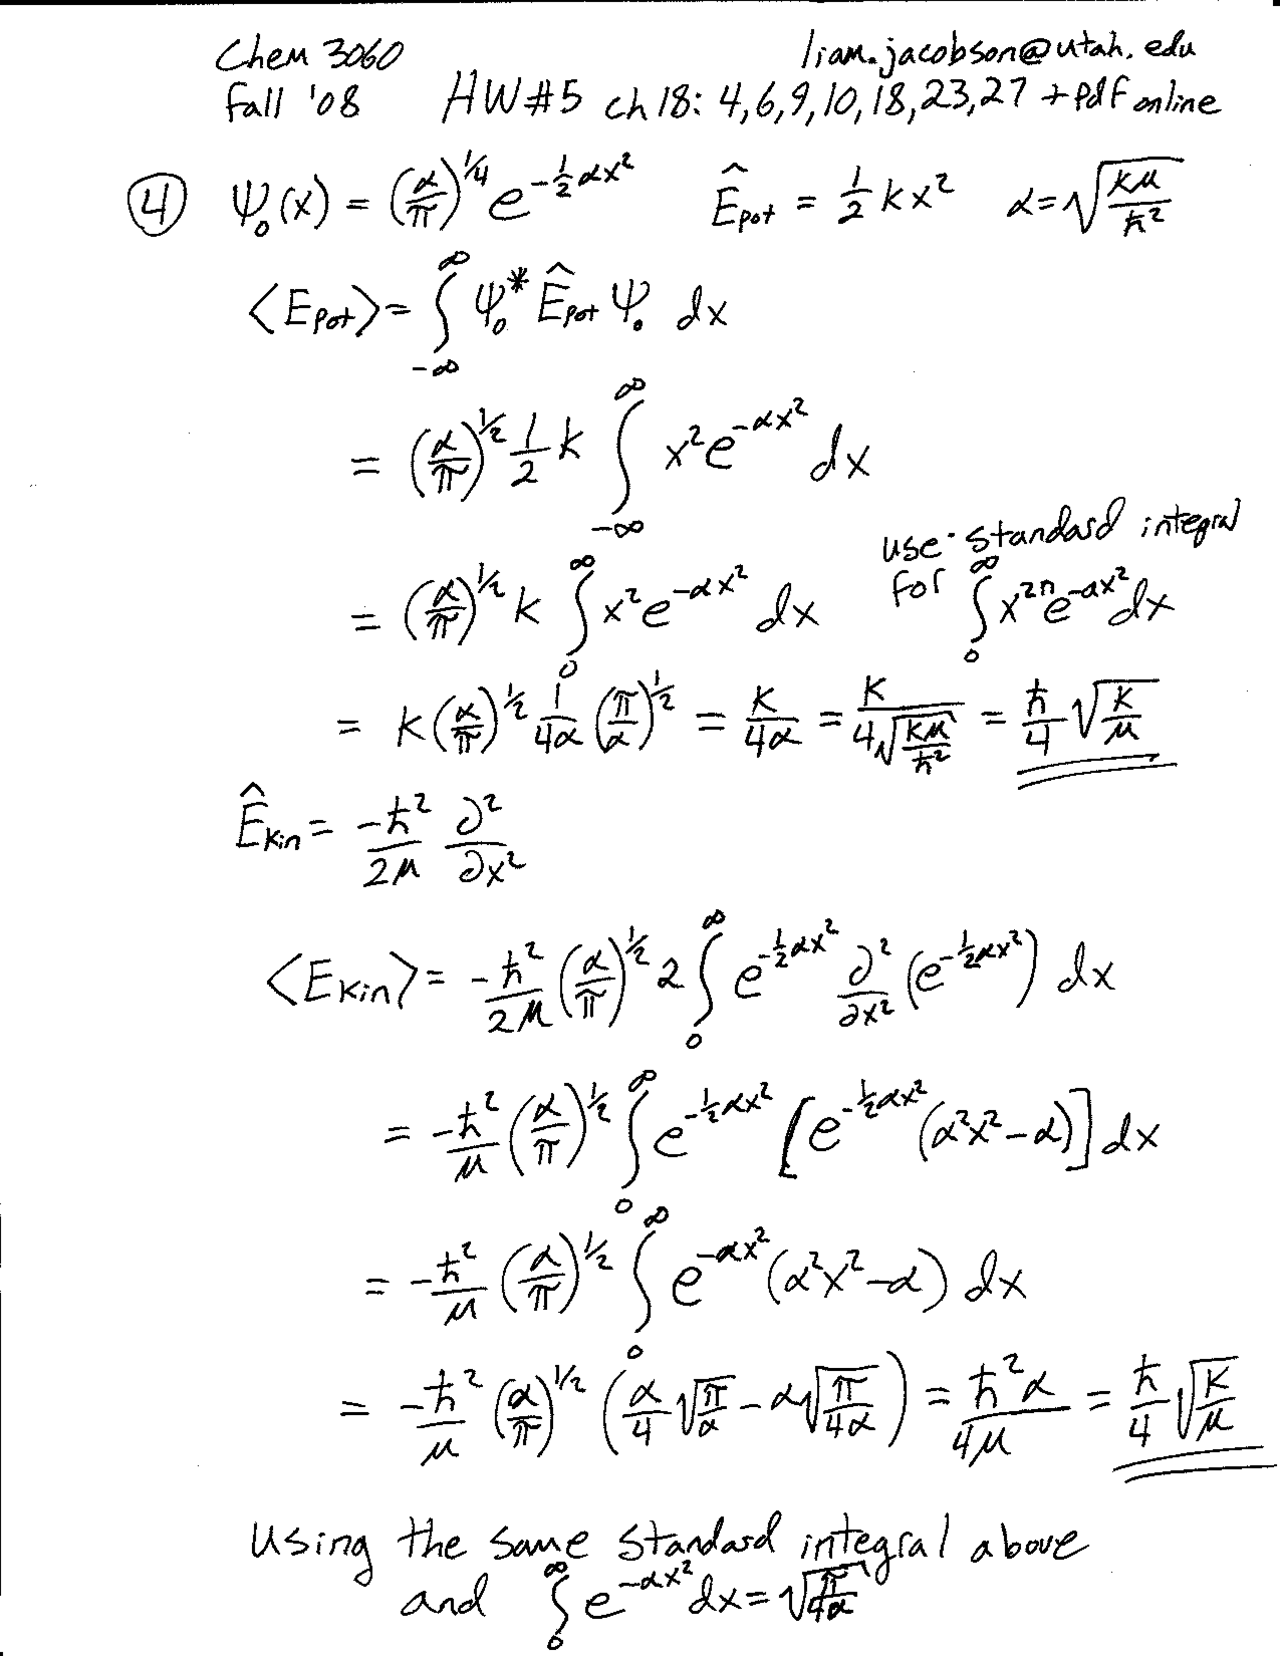 Chem 3060 liam.jacobson@utah.edu
Fall '08 HW#5 ch 18: 4,6,9,10,18,23,27 + pdf online
④ ψ₀(x) = (α/π)^{1/4} e^{-½αx²} Ê_pot = ½ kx² α = √(kμ/ħ²)
<E_pot> = ∫_{-∞}^{∞} ψ₀* Ê_pot ψ₀ dx
= (α/π)^{1/2} ½ k ∫_{-∞}^{∞} x² e^{-αx²} dx
= (α/π)^{1/2} k ∫_0^∞ x² e^{-αx²} dx use standard integral for ∫_0^∞ x^{2n} e^{-ax²} dx
= k (α/π)^{1/2} 1/4α (π/α)^{1/2} = k/4α = k/(4√(kμ/ħ²)) = ħ/4 √(k/μ)
Ê_kin = -ħ²/2μ ∂²/∂x²
<E_kin> = -ħ²/2μ (α/π)^{1/2} 2 ∫_0^∞ e^{-½αx²} ∂²/∂x² (e^{-½αx²}) dx
= -ħ²/μ (α/π)^{1/2} ∫_0^∞ e^{-½αx²} [e^{-½αx²} (α²x²-α)] dx
= -ħ²/μ (α/π)^{1/2} ∫_0^∞ e^{-αx²} (α²x²-α) dx
= -ħ²/μ (α/π)^{1/2} (α/4 √(π/α) - α√(π/4α)) = ħ²α/4μ = ħ/4 √(k/μ)
Using the same standard integral above
and ∫_0^∞ e^{-αx²} dx = √(π/4α)